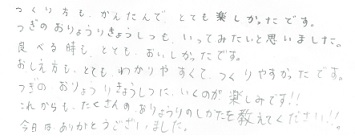 つくり方も、かんたんで とても楽しかったです。
つぎのおりょうりきょうしつも、いってみたいと思いました。
食べる時も、とても、おいしかったです。
おしえ方も、とても、わかりやすくて、つくりやすかったです。
つぎの おりょうりきょうしつに、いくのが楽しみです!!
これからも、たくさんのおりょうりのしかたを教えてください!!
今日はありがとうございました。